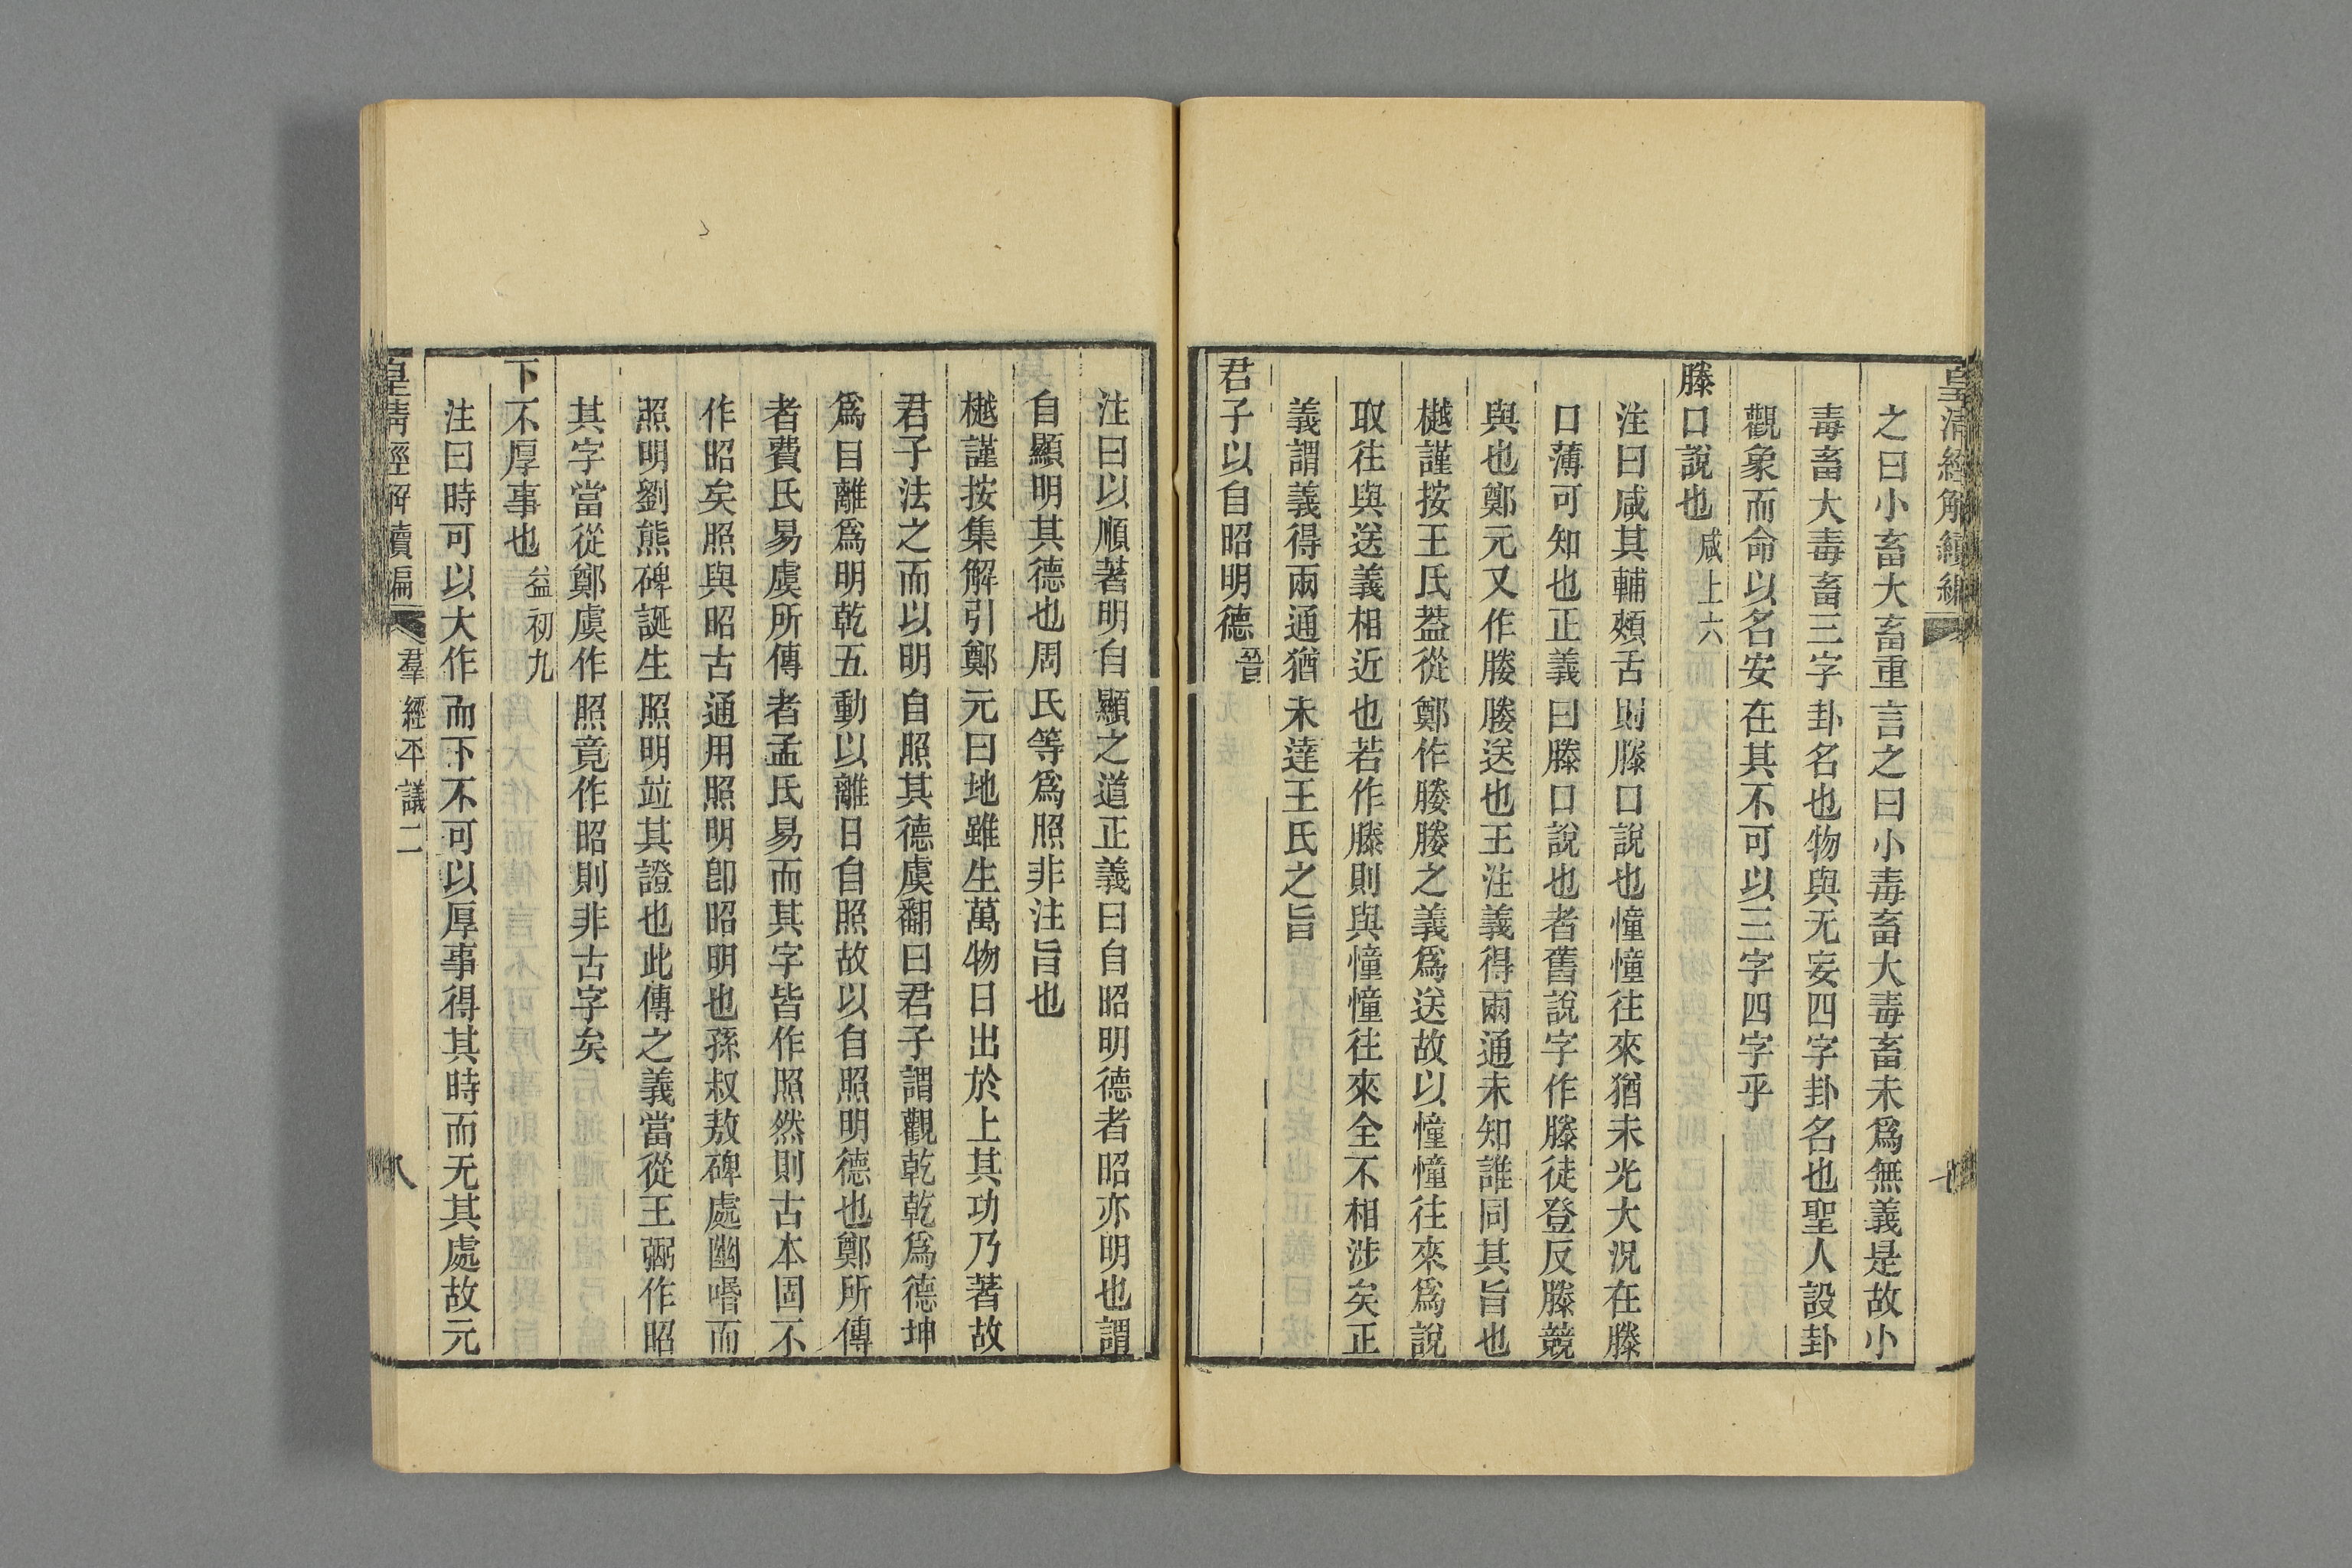 皇清經解續編
之曰小畜大畜重言之曰小毒畜大毒畜未爲無義是故小
毒畜大毒畜三字卦名也物與无妄四字卦名也聖人設卦
觀象而命以名安在其不可以三字四字乎
滕口說也 咸上六
注曰咸其輔頰舌則滕口說也憧憧往來猶未光大況在滕
口薄可知也正義曰滕口說也者舊說字作滕徒登反滕競
與也鄭元又作媵媵送也王注義得兩通未知誰同其旨也
樾謹按王氏葢從鄭作媵媵之義爲送故以憧憧往來爲說
取往與送義相近也若作滕則與憧憧往來全不相涉矣正
義謂義得兩通猶未達王氏之旨
君子以自昭明德 晉
注曰以順著明自顯之道正義曰自昭明德者昭亦明也謂
自顯明其德也周氏等爲照非注旨也
樾謹按集解引鄭元曰地雖生萬物日出於上其功乃著故
君子法之而以明自照其德虞翻曰君子謂觀乾乾爲德坤
爲自離爲明乾五動以離日自照故以自照明德也鄭所傳
者費氏易虞所傳者孟氏易而其字皆作照然則古本固不
作昭矣照與昭古通用照明卽昭明也孫叔敖碑處幽㬱而
照明劉熊碑誕生照明竝其證也此傳之義當從王弼作昭
其字當從鄭虞作照竟作昭則非古字矣
下不厚事也 益初九
注曰時可以大作而下不可以厚事得其時而无其處故元
皇清經解續編
羣經平議二
八